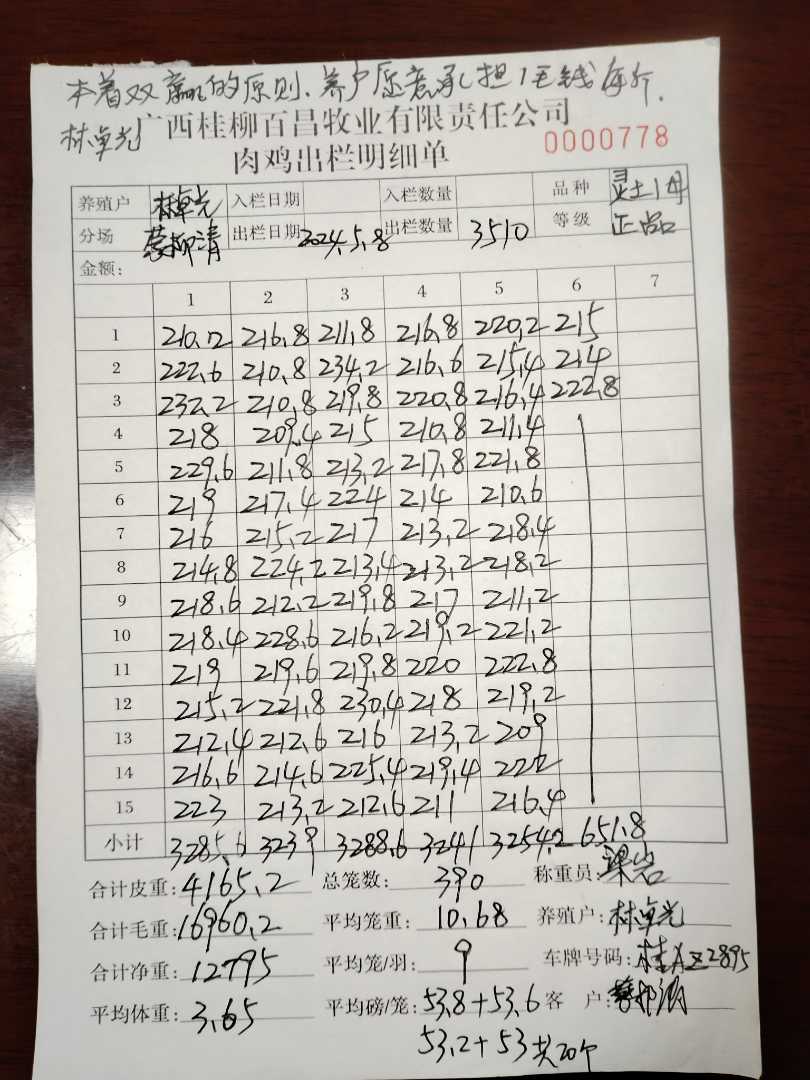 本着双赢的原则、养户愿意承担1毛钱每斤.
林卓光
广西桂柳百昌牧业有限责任公司
肉鸡出栏明细单 0000778
养殖户 林卓光 入栏日期 入栏数量 品种 灵土1母
分场 出栏日期 2024.5.8 出栏数量 3510 等级 正品
金额:
1 2 3 4 5 6 7
1 210.2 216.8 211.8 216.8 220.2 215
2 222.6 210.8 234.2 216.6 215.4 214
3 232.2 210.8 219.8 220.8 216.4 222.8
4 218 209.4 215 210.8 211.4
5 229.6 211.8 213.2 217.8 221.8
6 219 217.4 224 214 210.6
7 216 215.2 217 213.2 218.4
8 214.8 224.2 213.4 213.2 218.2
9 218.6 212.2 219.8 217 211.2
10 218.4 228.6 216.2 219.2 221.2
11 219 219.6 219.8 220 222.8
12 215.2 221.8 230.4 218 219.2
13 212.4 212.6 216 213.2 209
14 216.6 214.6 225.4 219.4 222
15 223 213.2 212.6 211 216.4
小计 3285.6 3239 3288.6 3241 3254.2 651.8
合计皮重: 4165.2 总笼数: 390 称重员: 梁岩
合计毛重: 16960.2 平均笼重: 10.68 养殖户: 林卓光
合计净重: 12795 平均笼/羽: 9 车牌号码: 桂AZ2895
平均体重: 3.65 平均磅/笼: 53.8+53.6 客 户:
53.2+53共20个